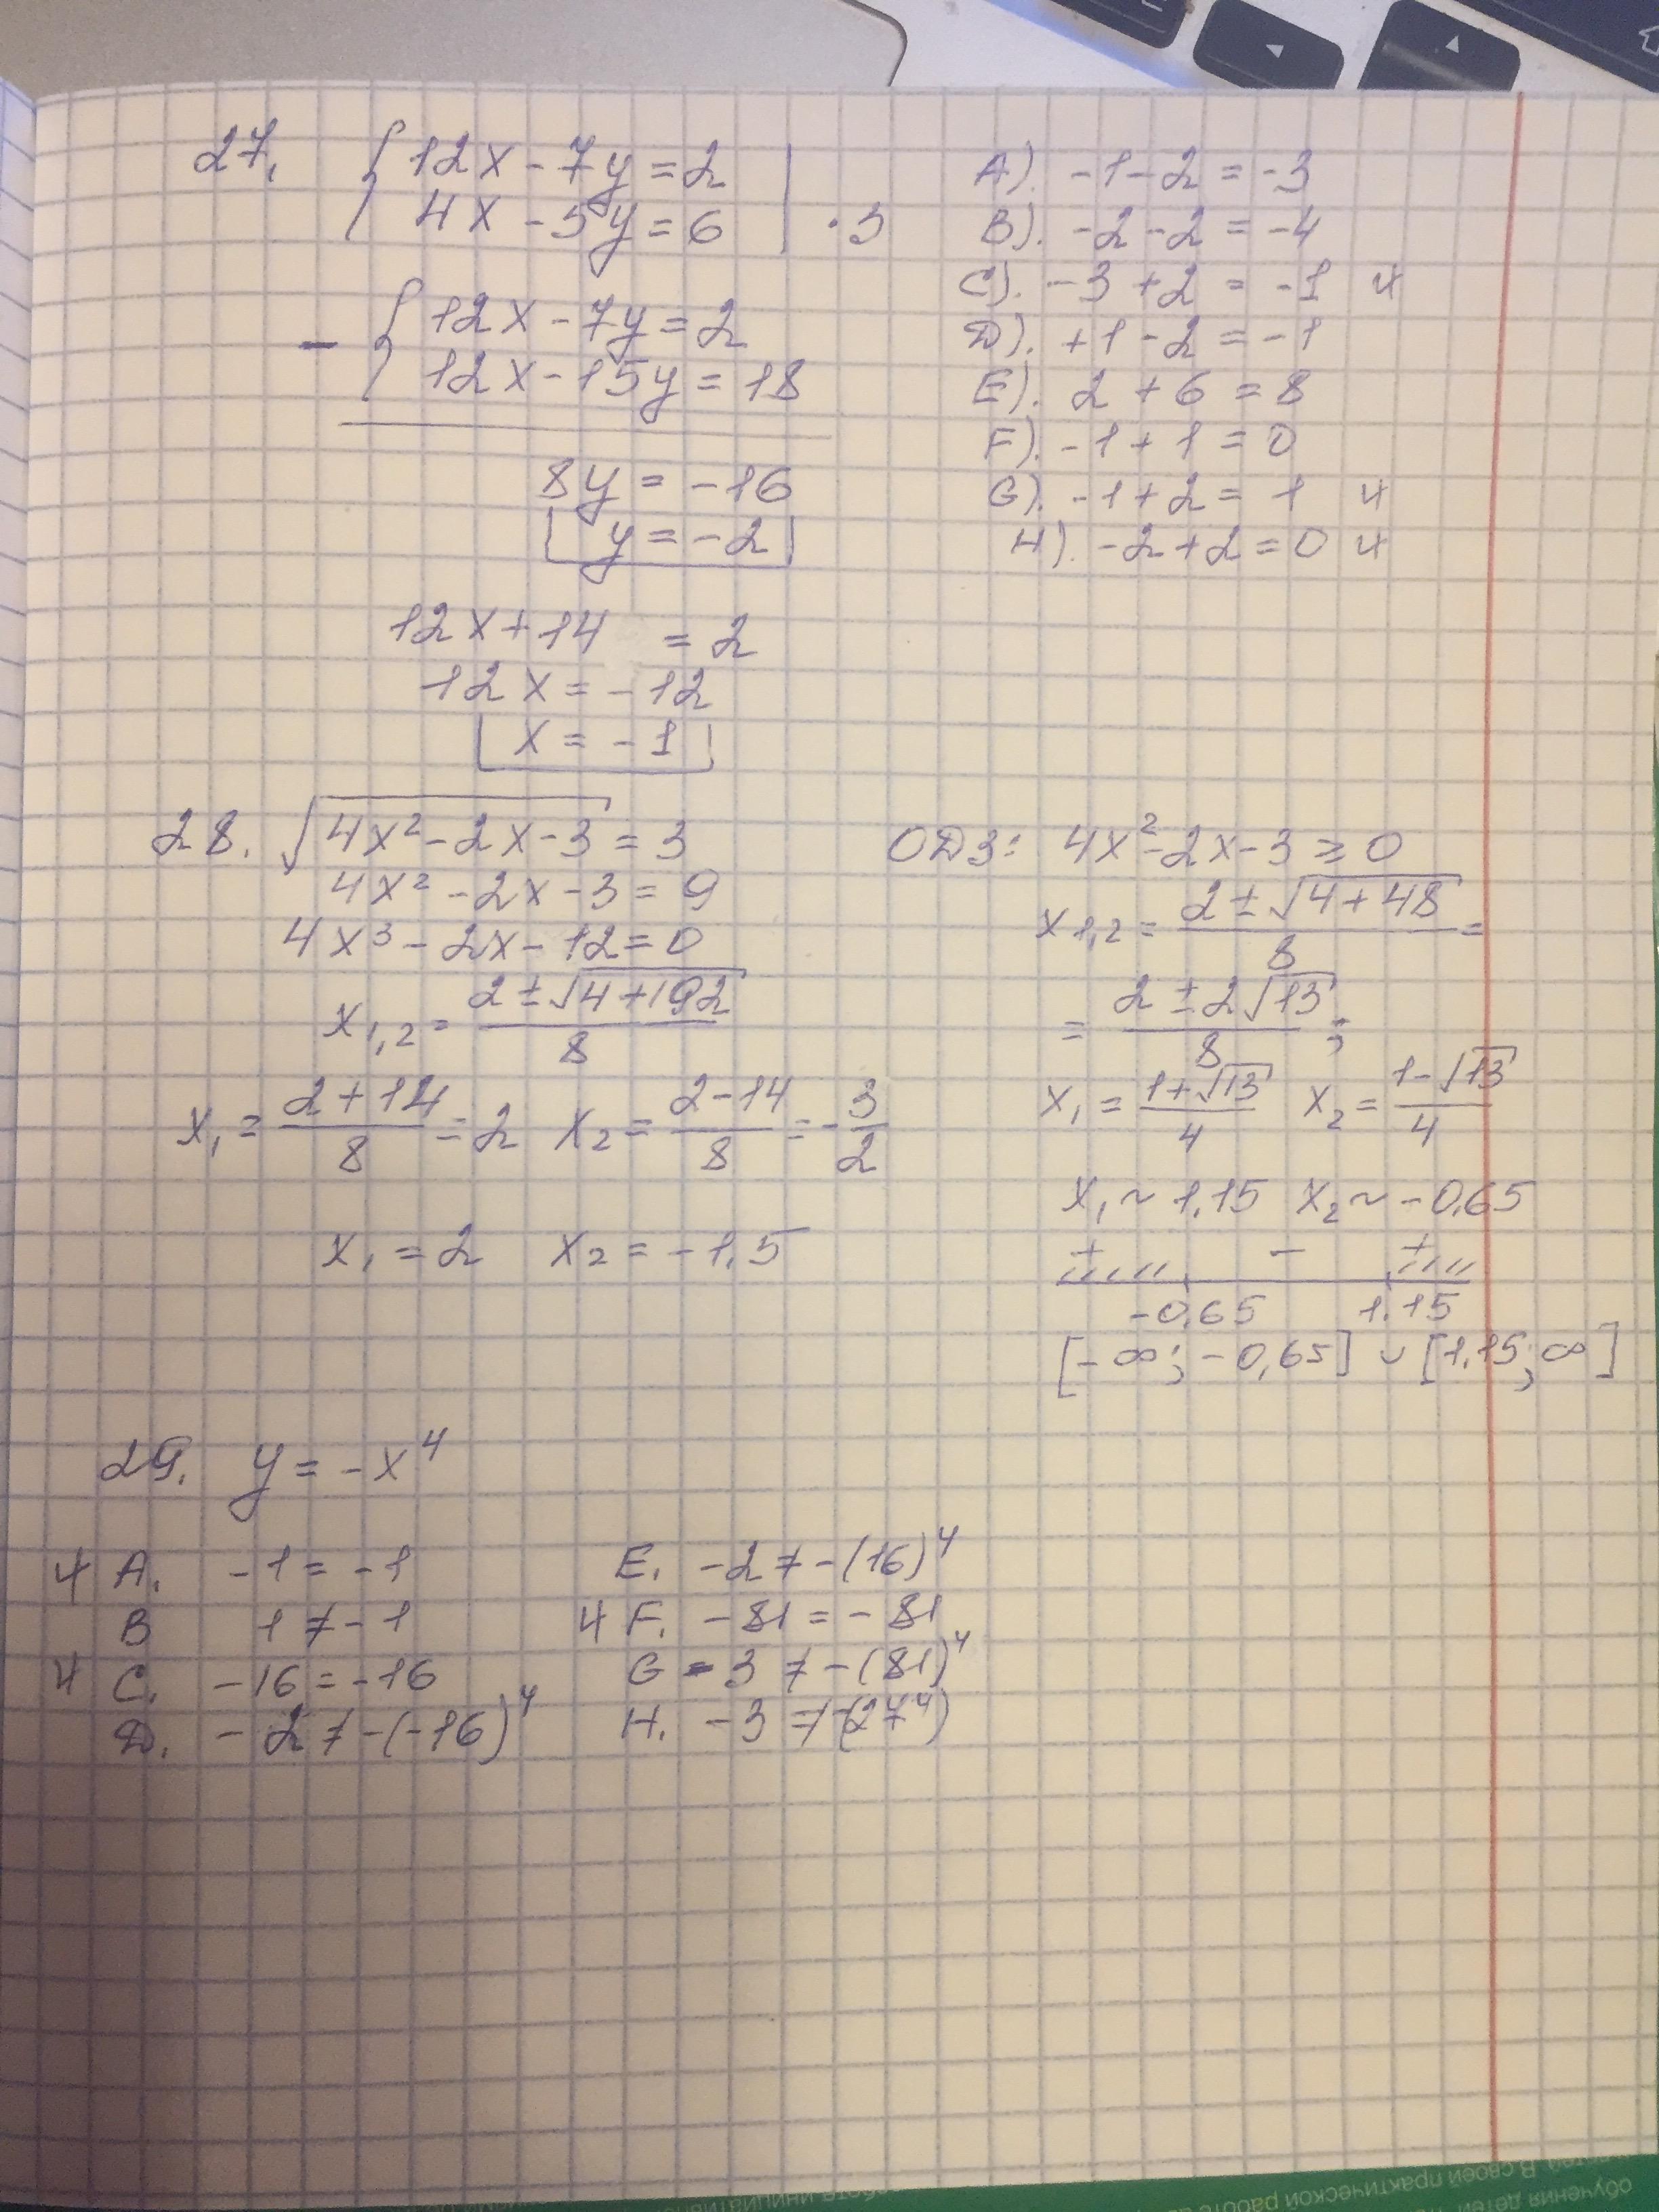 27. { 12x - 7y = 2
4x - 5y = 6 | · 3
- { 12x - 7y = 2
12x - 15y = 18
8y = -16
y = -2
12x + 14 = 2
12x = -12
x = -1
A). -1 - 2 = -3
B). -2 - 2 = -4
C). -3 + 2 = -1 и
D). +1 - 2 = -1
E). 2 + 6 = 8
F). -1 + 1 = 0
G). -1 + 2 = 1 и
H). -2 + 2 = 0 и
28. √(4x² - 2x - 3) = 3
4x² - 2x - 3 = 9
4x³ - 2x - 12 = 0
x₁,₂ = (2 ± √(4 + 192)) / 8
x₁ = (2 + 14) / 8 = 2 x₂ = (2 - 14) / 8 = -3/2
x₁ = 2 x₂ = -1,5
ОДЗ: 4x² - 2x - 3 ≥ 0
x₁,₂ = (2 ± √(4 + 48)) / 8 =
= (2 ± 2√13) / 8 ;
x₁ = (1 + √13) / 4 x₂ = (1 - √13) / 4
x₁ ~ 1,15 x₂ ~ -0,65
+ - +
-0,65 1.15
[-∞; -0,65] ∪ [1,15; ∞]
29. y = -x⁴
и A. -1 = -1
B 1 ≠ -1
и C. -16 = -16
D. -2 ≠ -(-16)⁴
E. -2 ≠ -(16)⁴
и F. -81 = -81
G - 3 ≠ -(81)⁴
H. -3 ≠ -(27⁴)
обучения детей
В своей практической работе